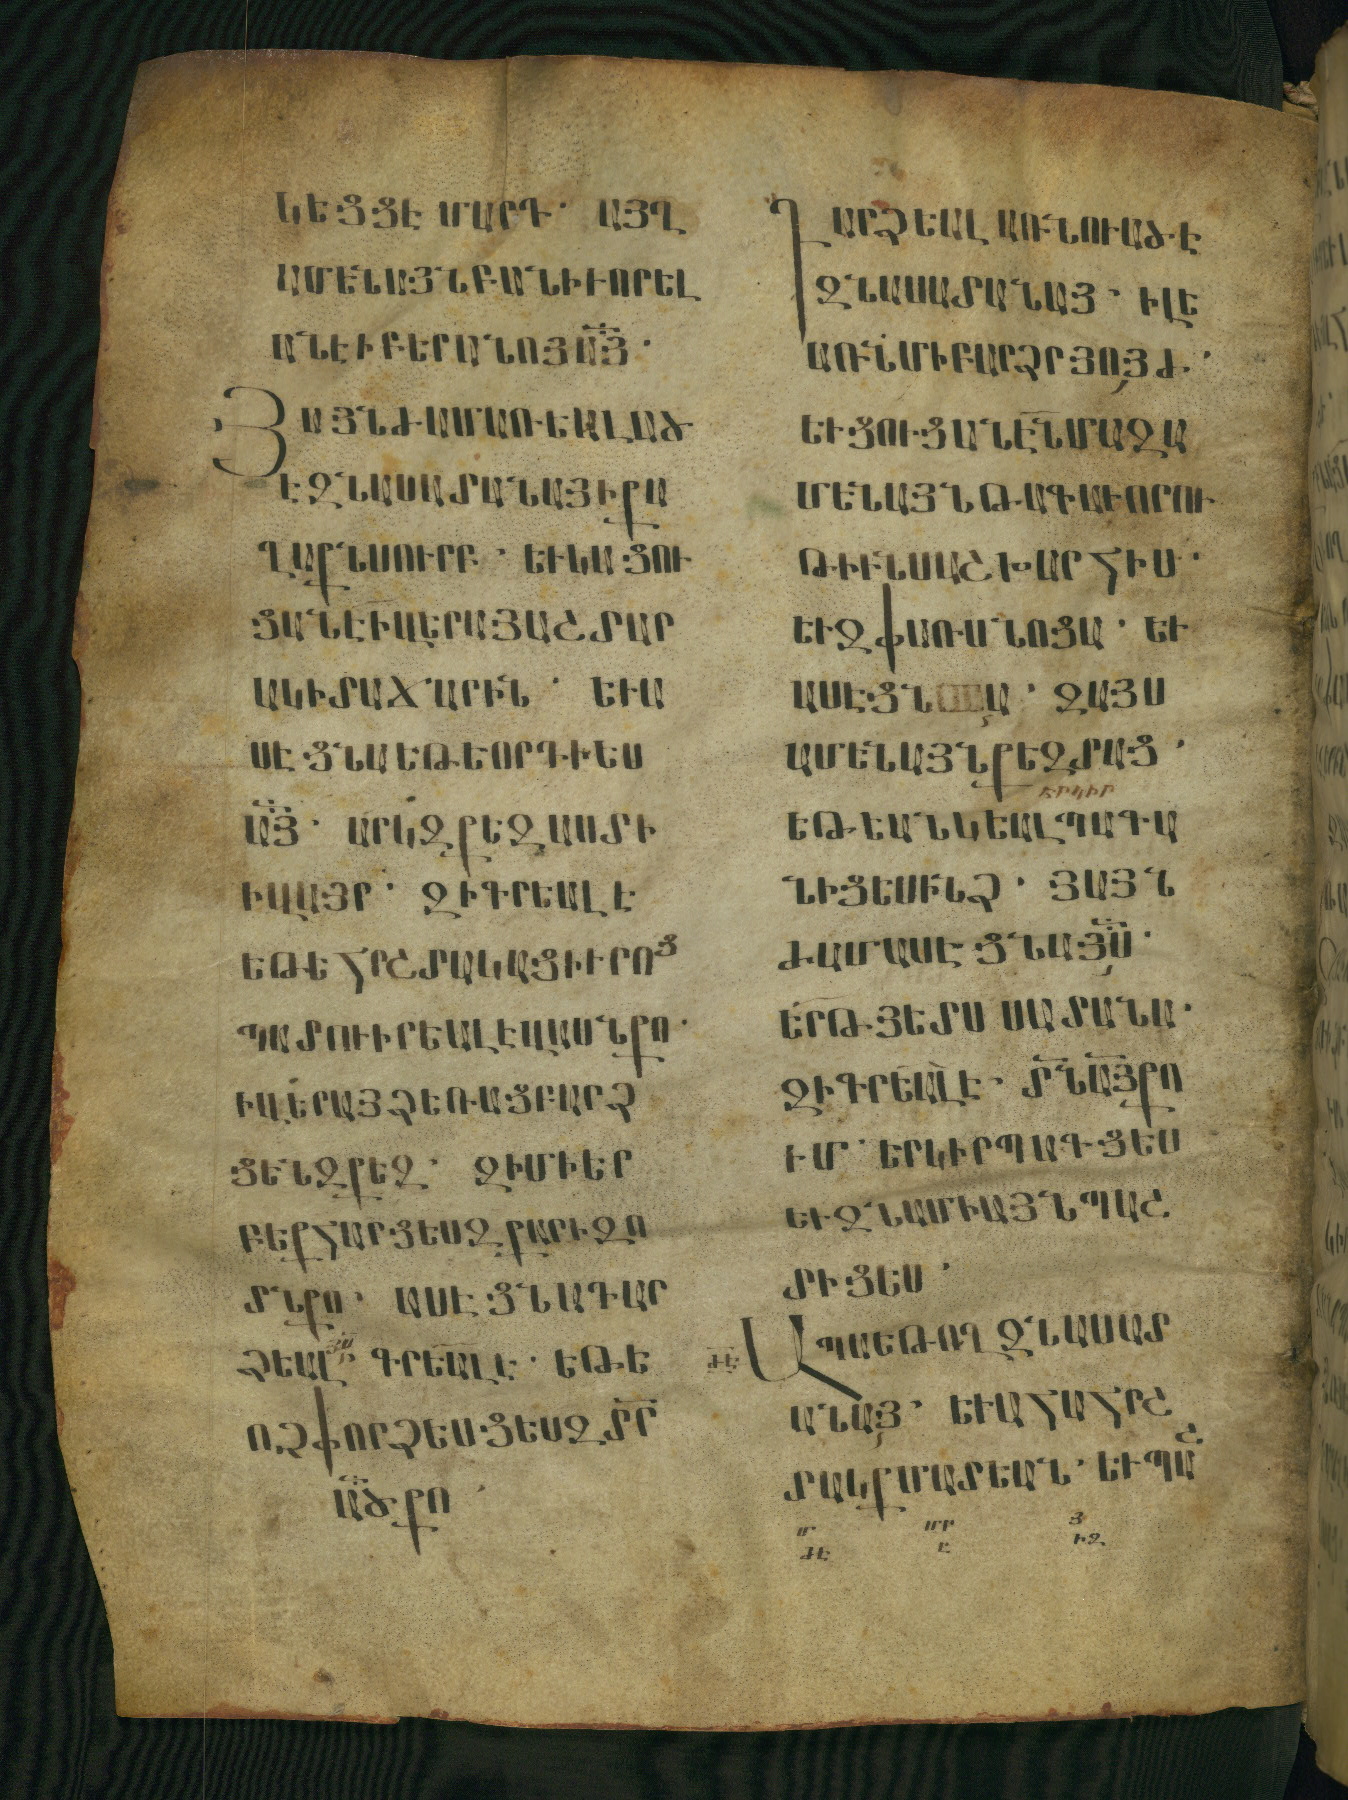 ԿԵՑՑԷ ՄԱՐԴ· ԱՅՂ
ԱՄԵՆԱՅՆ ԲԱՆԻՒ ՈՐ ԵԼ
ԱՆԷ Ի ԲԵՐԱՆՈՅ ԱՅ·
ՅԱՅՆԺԱՄ ԱՌԵԱԼ ԱԾ
Է ԶՆԱ ՍԱՏԱՆԱՅ Ի ՔԱ
ՂԱՔՆ ՍՈՒՐԲ· ԵՒ ԿԱՑՈՒ
ՑԱՆԷ Ի ՎԵՐԱՅ ԱՇՏԱՐ
ԱԿԻ ՏԱՃԱՐԻՆ· ԵՒ Ա
ՍԷ ՑՆԱ ԵԹԵ ՈՐԴԻ ԵՍ
ԱՅ· ԱՐԿ ԶՔԵԶ ԱՍՏԻ
Ի ՎԱՅՐ· ԶԻ ԳՐԵԱԼ Է
ԵԹԵ ՀՐՇՏԱԿԱՑ ԻՒՐՈՑ
ՊԱՏՈՒԻՐԵԱԼ Է ՎԱՍՆ ՔՈ·
Ի ՎԵՐԱՅ ՁԵՌԱՑ ԲԱՐՁ
ՑԵՆ ԶՔԵԶ· ԶԻ ՄԻ ԵՐ
ԲԵՔ ՀԱՐՑԵՍ ԶՔԱՐԻ ԶՈ
ՏՆ ՔՈ· ԱՍԷ ՑՆԱ ԴԱՐ
ՁԵԱԼ ՅՍ ԳՐԵԱԼ Է· ԵԹԵ
ՈՉ ՓՈՐՁԵՍՑԵՍ ԶՏՐ
ԱԾ ՔՈ·
ԴԱՐՁԵԱԼ ԱՌՆՈՒ ԱԾԷ
ԶՆԱ ՍԱՏԱՆԱՅ· Ի ԼԵ
ԱՌՆ ՄԻ ԲԱՐՁՐ ՅՈՅԺ·
ԵՒ ՑՈՒՑԱՆԷ ՆՄԱ ԶԱ
ՄԵՆԱՅՆ ԹԱԳԱՒՈՐՈՒ
ԹԻՒՆՍ ԱՇԽԱՐՀԻՍ·
ԵՒ ԶՓԱՌՍ ՆՈՑԱ· ԵՒ
ԱՍԷ ՑՆԱ· ԶԱՅՍ
ԱՄԵՆԱՅՆ ՔԵԶ ՏԱՑ·
ԵՐԿԻՐ
ԵԹԵ ԱՆԿԵԱԼ ՊԱԳԱ
ՆԻՑԵՍ ԻՆՁ· ՅԱՅՆ
ԺԱՄ ԱՍԷ ՑՆԱ ՅՍ·
ԵՐԹ ՅԵՏՍ ՍԱՏԱՆԱ·
ԶԻ ԳՐԵԱԼ Է· ՏՆ ԱՅ ՔՈ
ՒՄ· ԵՐԿԻՐ ՊԱԳՑԵՍ
ԵՒ ԶՆԱ ՄԻԱՅՆ ՊԱՇ
ՏԻՑԵՍ·
ԺԷ ԱՊԱ ԵԹՈՂ ԶՆԱ ՍԱՏ
ԱՆԱՅ· ԵՒ ԱՀԱ ՀՐՇ
ՏԱԿՔ ՄԱՏԵԱՆ· ԵՒ ՊԱՇ
Մ ՄՐ Յ
ԺԷ Է ԻԶ